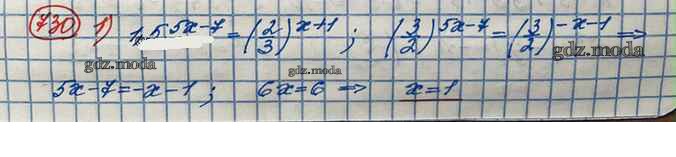 730 1) 1,5^(5x-7) = (2/3)^(x+1) ; (3/2)^(5x-7) = (3/2)^(-x-1) ⇒
gdz.moda gdz.moda gdz.moda
5x-7=-x-1 ; 6x=6 ⇒ x=1